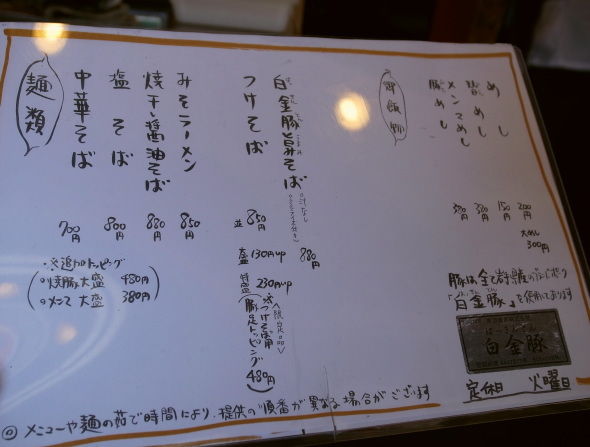 麺類
中華そば 700円
塩そば 800円
焼干し醤油そば 880円
みそラーメン 850円
つけそば
並 850円
大盛 130円up
特盛 230円up
白金豚旨みそば
880円
※追加トッピング
○焼豚大盛 480円
○メンマ大盛 380円
〈限定品〉
※つけそば用
豚足トッピング
480円
御飯物
豚めし
メンマめし
めし
めし
150円
200円
大めし
300円
豚は全て岩手県産の
「白金豚」を使用しております
白金豚
定休日 火曜日
◎メニューや麺の茹で時間により、提供の順番が異なる場合がございます